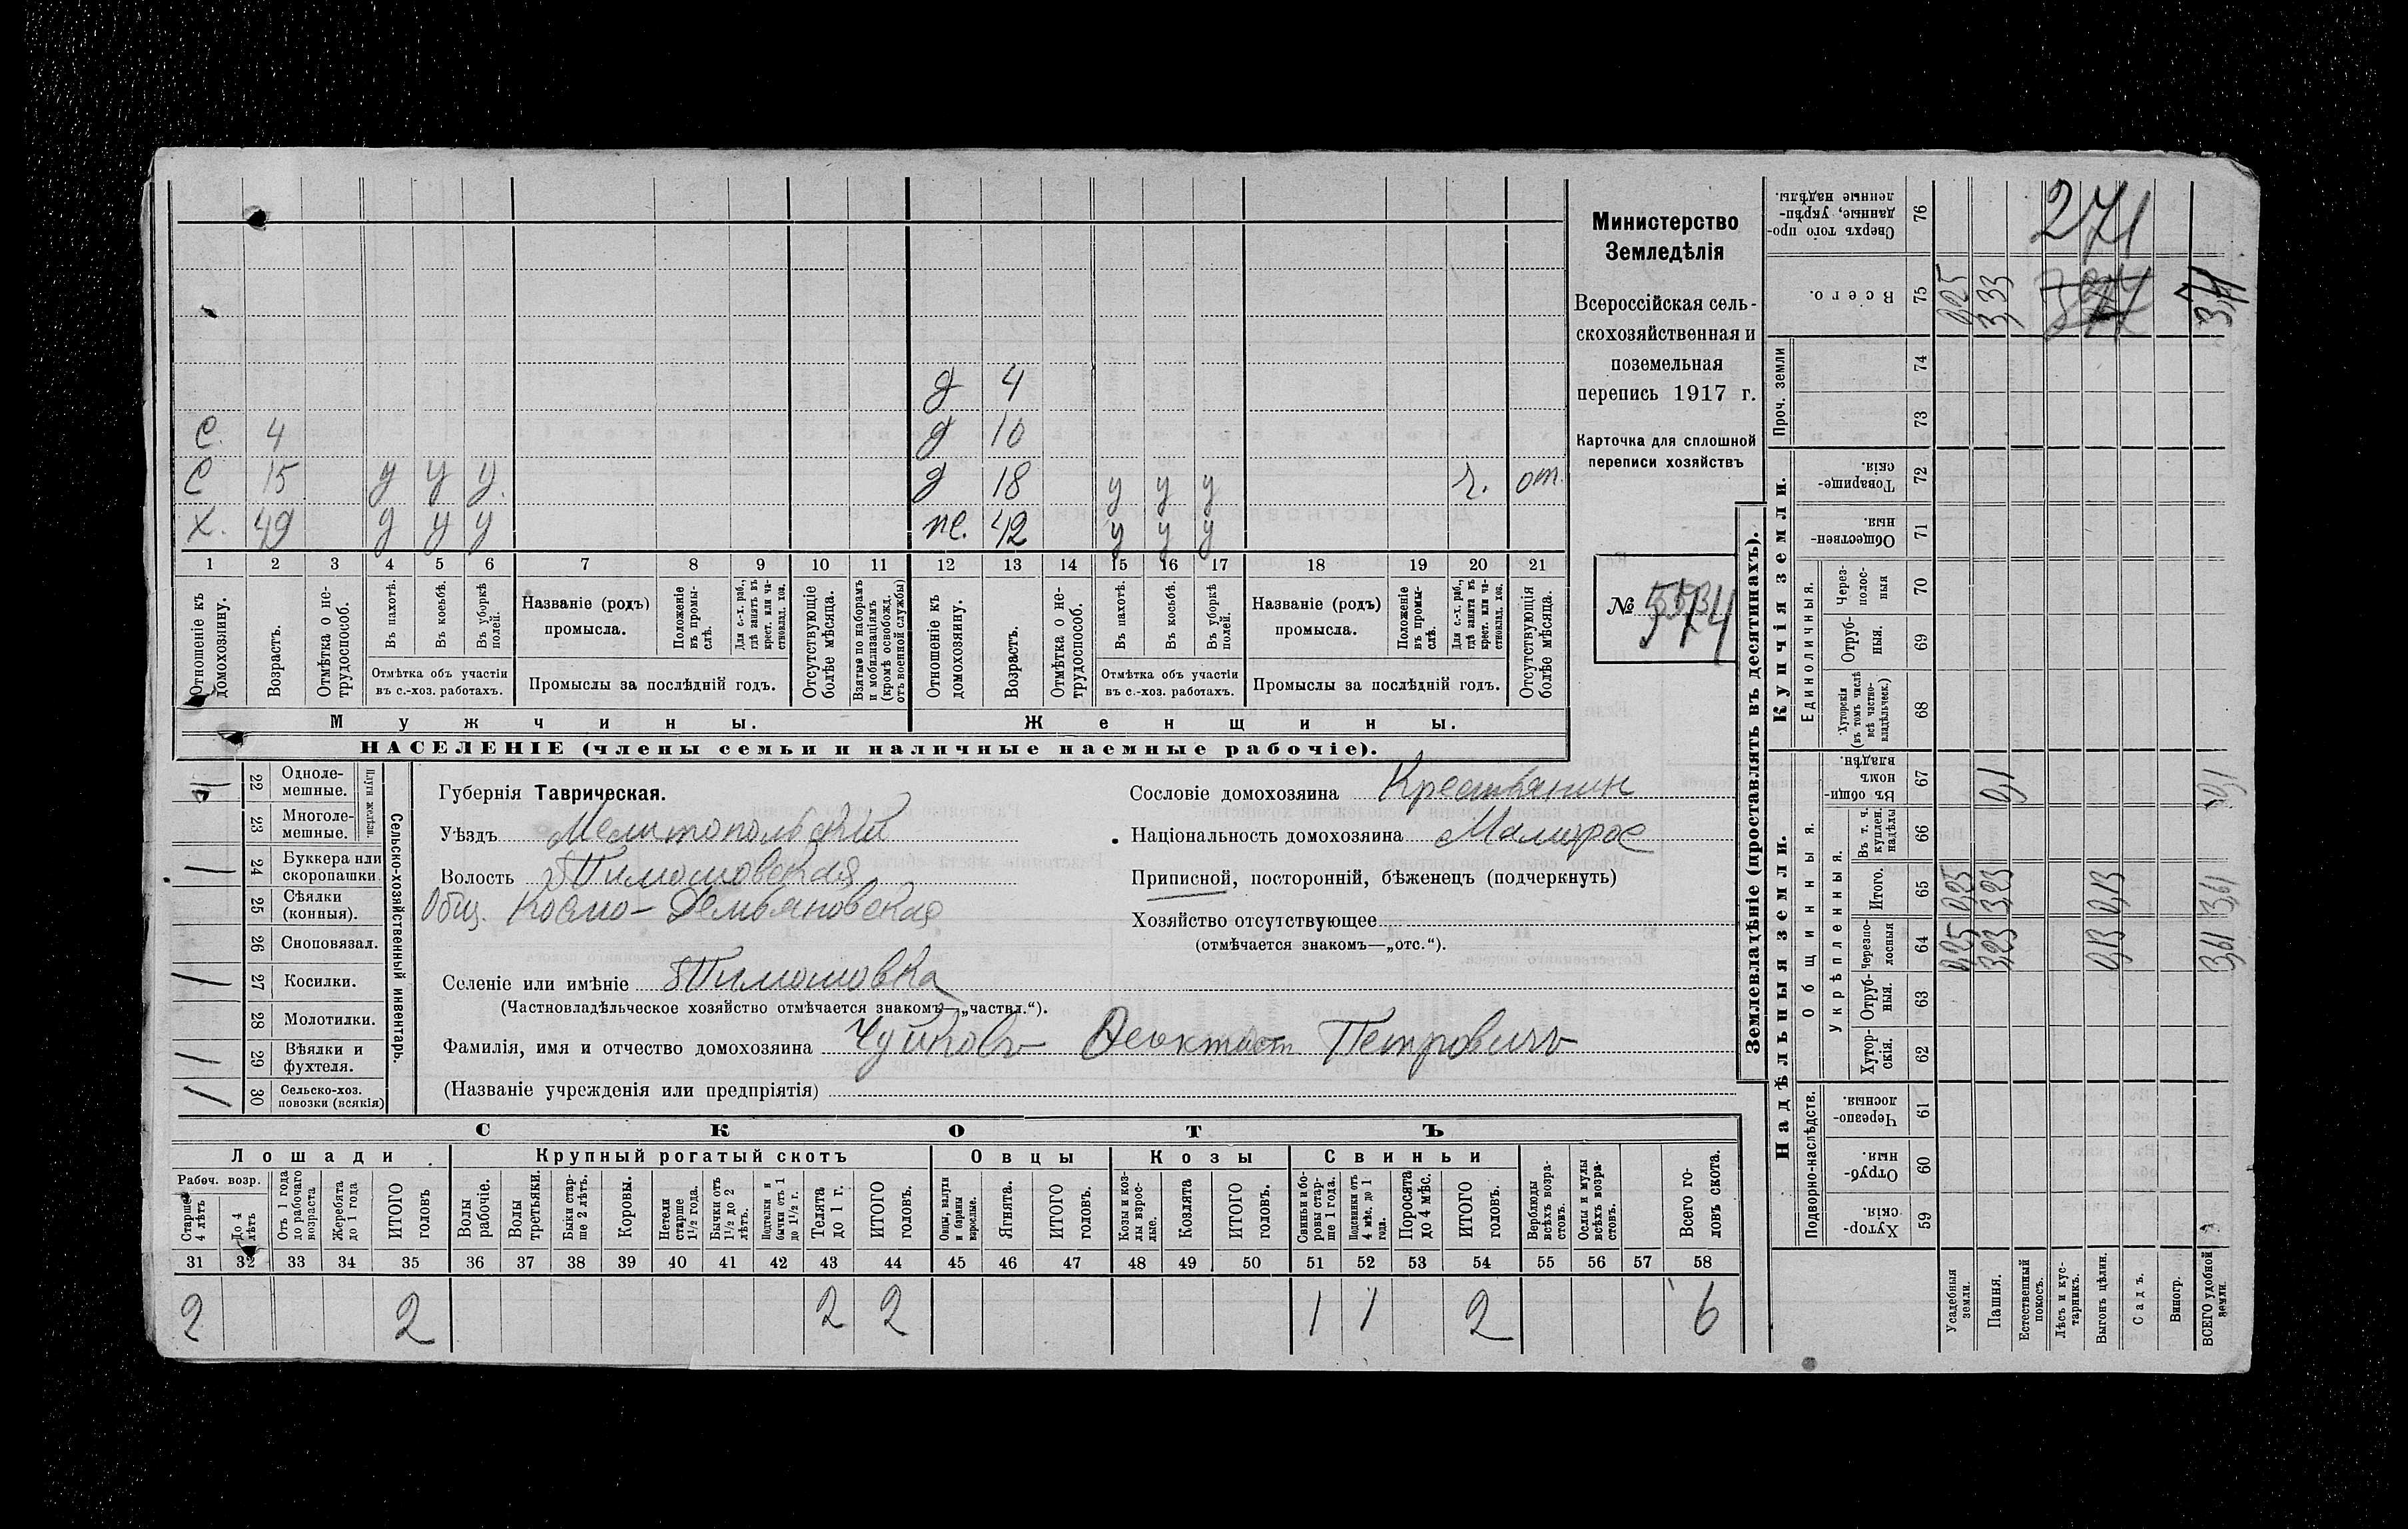 Министерство
Земледѣлія
Всероссійская сель-
скохозяйственная и
поземельная
перепись 1917 г.
Карточка для сплошной
переписи хозяйствъ
№ 574
д 4
С. 4 д 10
С 15 у у у. д 18 у у у г. от.
Х. 49 у у у ж. 42 у у у
1 2 3 4 5 6 7 8 9 10 11 12 13 14 15 16 17 18 19 20 21
Отношеніе къ домохозяину.
Возрастъ.
Отмѣтка о не-
трудоспособ.
Въ пахотѣ.
Въ косьбѣ.
Въ уборкѣ полей.
Отмѣтка объ участіи
въ с.-хоз. работахъ.
Названіе (родъ)
промысла.
Положеніе въ промы-
слѣ.
Для с.-х. раб., гдѣ занятъ въ крест. или ча-
стновлад. хоз.
Промыслы за послѣдній годъ.
Отсутствующіе болѣе мѣсяца.
Взятые по наборамъ и мобилизаціямъ (кромѣ освобожд. отъ военной службы)
Отношеніе къ домохозяину.
Возрастъ.
Отмѣтка о не-
трудоспособ.
Въ пахотѣ.
Въ косьбѣ.
Въ уборкѣ полей.
Отмѣтка объ участіи
въ с.-хоз. работахъ.
Названіе (родъ)
промысла.
Положеніе въ промы-
слѣ.
Для с.-х. раб., гдѣ занята въ крест. или ча-
стновлад. хоз.
Промыслы за послѣдній годъ.
Отсутствующія болѣе мѣсяца.
Мужчины. Женщины.
НАСЕЛЕНІЕ (члены семьи и наличные наемные рабочіе).
Сельско-хозяйственный инвентарь.
Плуги желѣзн.
22 Одноле-
мешные. 1
23 Многоле-
мешные.
24 Буккера или
скоропашки 1
25 Сѣялки
(конныя).
26 Сноповязал.
27 Косилки. 1
28 Молотилки.
29 Вѣялки и
фухтеля. 1
30 Сельско-хоз.
повозки (всякія) 1
Губернія Таврическая.
Уѣздъ Мелитопольскій
Волость Тимошовская
Общ. Космо-Демьяновская
Селеніе или имѣніе Тимошовка
(Частновладѣльческое хозяйство отмѣчается знакомъ—„частвл.“).
Фамилія, имя и отчество домохозяина Чуйковъ Феоктист Петровичъ
(Названіе учрежденія или предпріятія)
Сословіе домохозяина Крестьянин
Національность домохозяина Малорос
Приписной, посторонній, бѣженецъ (подчеркнуть)
Хозяйство отсутствующее
(отмѣчается знакомъ—„отс.“).
СКОТЪ
Лошади Крупный рогатый скотъ Овцы Козы Свиньи
Рабоч. возр.
Старше 4 лѣтъ
До 4 лѣтъ
Отъ 1 года до рабочаго возраста
Жеребята до 1 года
ИТОГО головъ
Волы рабочіе.
Волы третьяки.
Быки стар-
ше 2 лѣтъ.
Коровы.
Нетели старше 1½ года.
Бычки отъ 1½ до 2 лѣтъ.
Подтелки и бычки отъ 1 до 1½ г.
Телята до 1 г.
ИТОГО головъ.
Овцы, валухи и бараны взрослые.
Ягнята.
ИТОГО головъ.
Козы и коз-
лы взрос-
лые.
Козлята
ИТОГО головъ.
Свиньи и бо-
ровы стар-
ше 1 года.
Подсвинки отъ 4 мѣс. до 1 года.
Поросята до 4 мѣс.
ИТОГО головъ.
Верблюды всѣхъ возра-
стовъ.
Ослы и мулы всѣхъ возра-
стовъ.
Всего го-
ловъ скота.
31 32 33 34 35 36 37 38 39 40 41 42 43 44 45 46 47 48 49 50 51 52 53 54 55 56 57 58
2 2 2 2 1 1 2 6
Землевладѣніе (проставлять въ десятинахъ).
Надѣльныя земли. Купчія земли.
Подворно-наслѣдств.
Хутор-
скія. 59
Отруб-
ныя. 60
Черезпо-
лосныя 61
Общинныя.
Укрѣпленныя.
Хутор-
скія. 62
Отруб-
ныя. 63
Черезпо-
лосныя 64
Итого. 65
Въ т. ч. куплен. надѣлы 66
Въ общин-
номъ владѣн. 67
Единоличныя.
Хуторскія (въ томъ числѣ всѣ частно-
владѣльческ.) 68
Отруб-
ныя. 69
Через-
полос-
ныя 70
Обществен-
ныя. 71
Товарище-
скія. 72
Проч. земли
73 74
Всего. 75
Сверхъ того про-
данные, укрѣп-
ленные надѣлы. 76
Усадебныя земли. 0,25 0,25 0,25
Пашня. 3,23 3,23 0,1 3,33
Естественный покосъ.
Лѣсъ и кус-
тарникъ.
Выгонъ цѣлин. 0,13 0,13
Садъ.
Виногр.
ВСЕГО удобной земли. 3,61 3,61 0,1 3,71
271